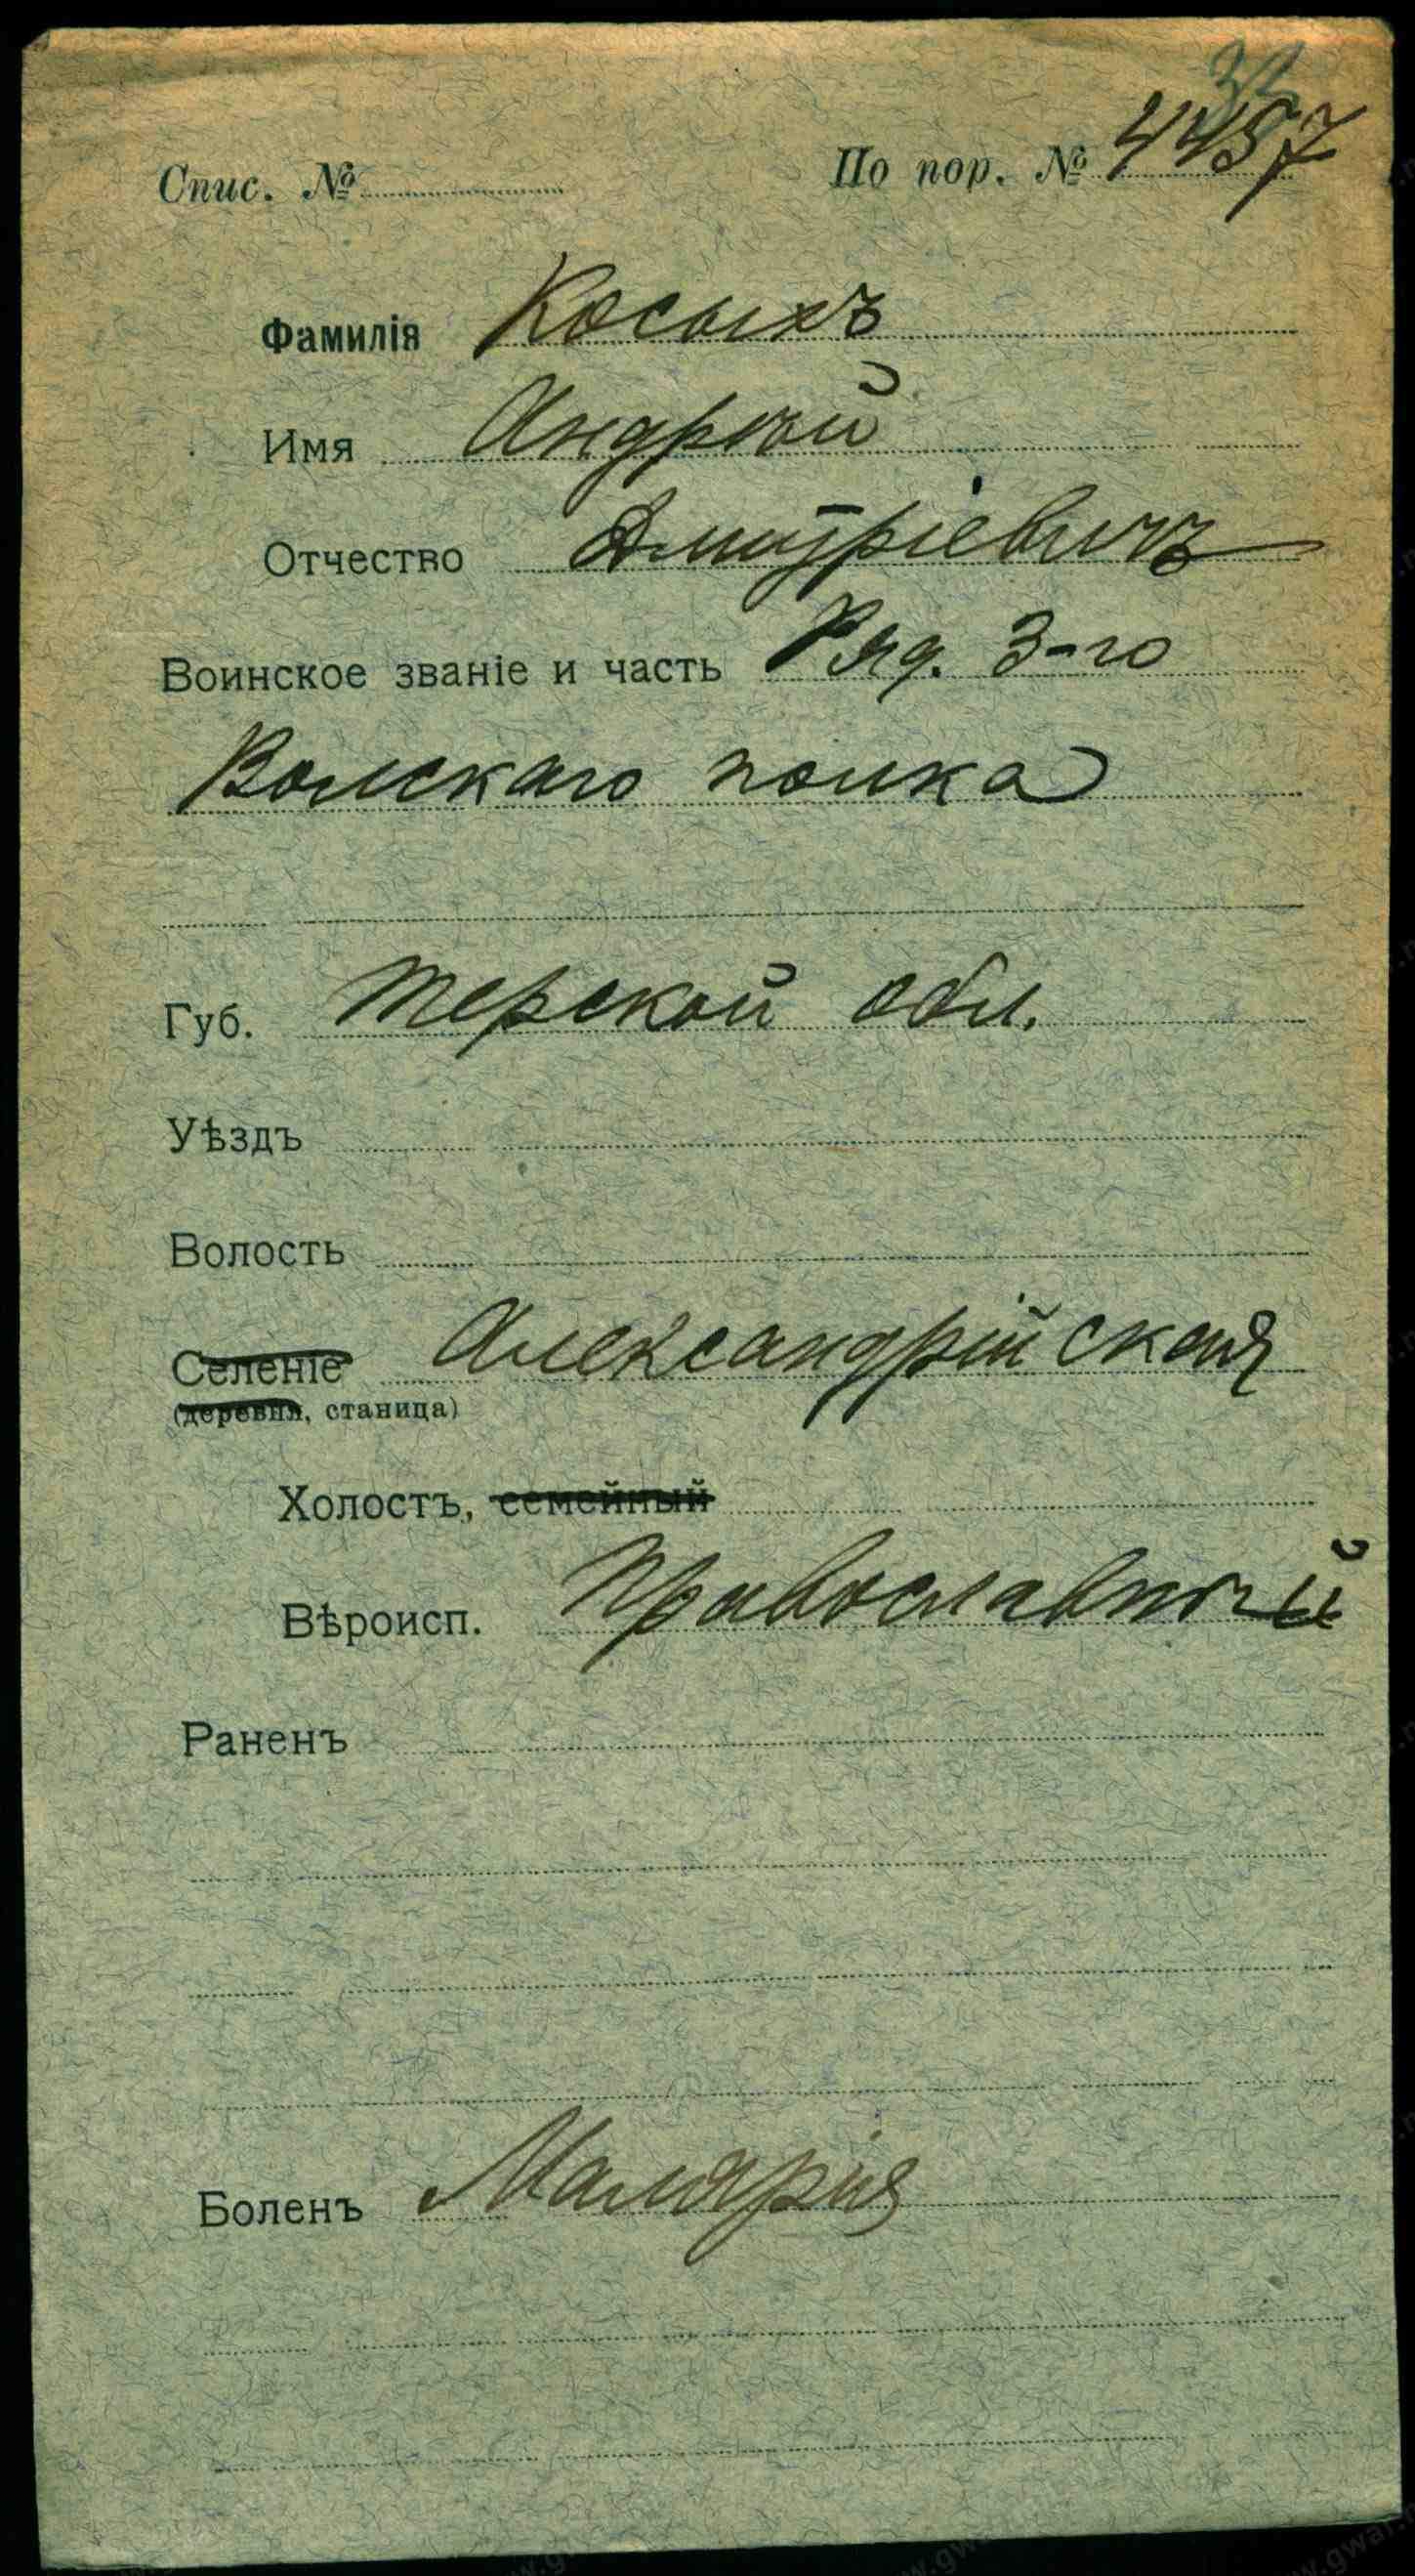 32
Спис. № По пор. № 4457
Фамилія Косыхъ
Имя Андрѣй
Отчество Дмитріевичъ
Воинское званіе и часть Ряд. 3-го
Волскаго полка
Губ. Терской обл.
Уѣздъ
Волость
Селеніе Александрійская
(деревня, станица)
Холостъ, семейный
Вѣроисп. Православный
Раненъ
Боленъ Малярія